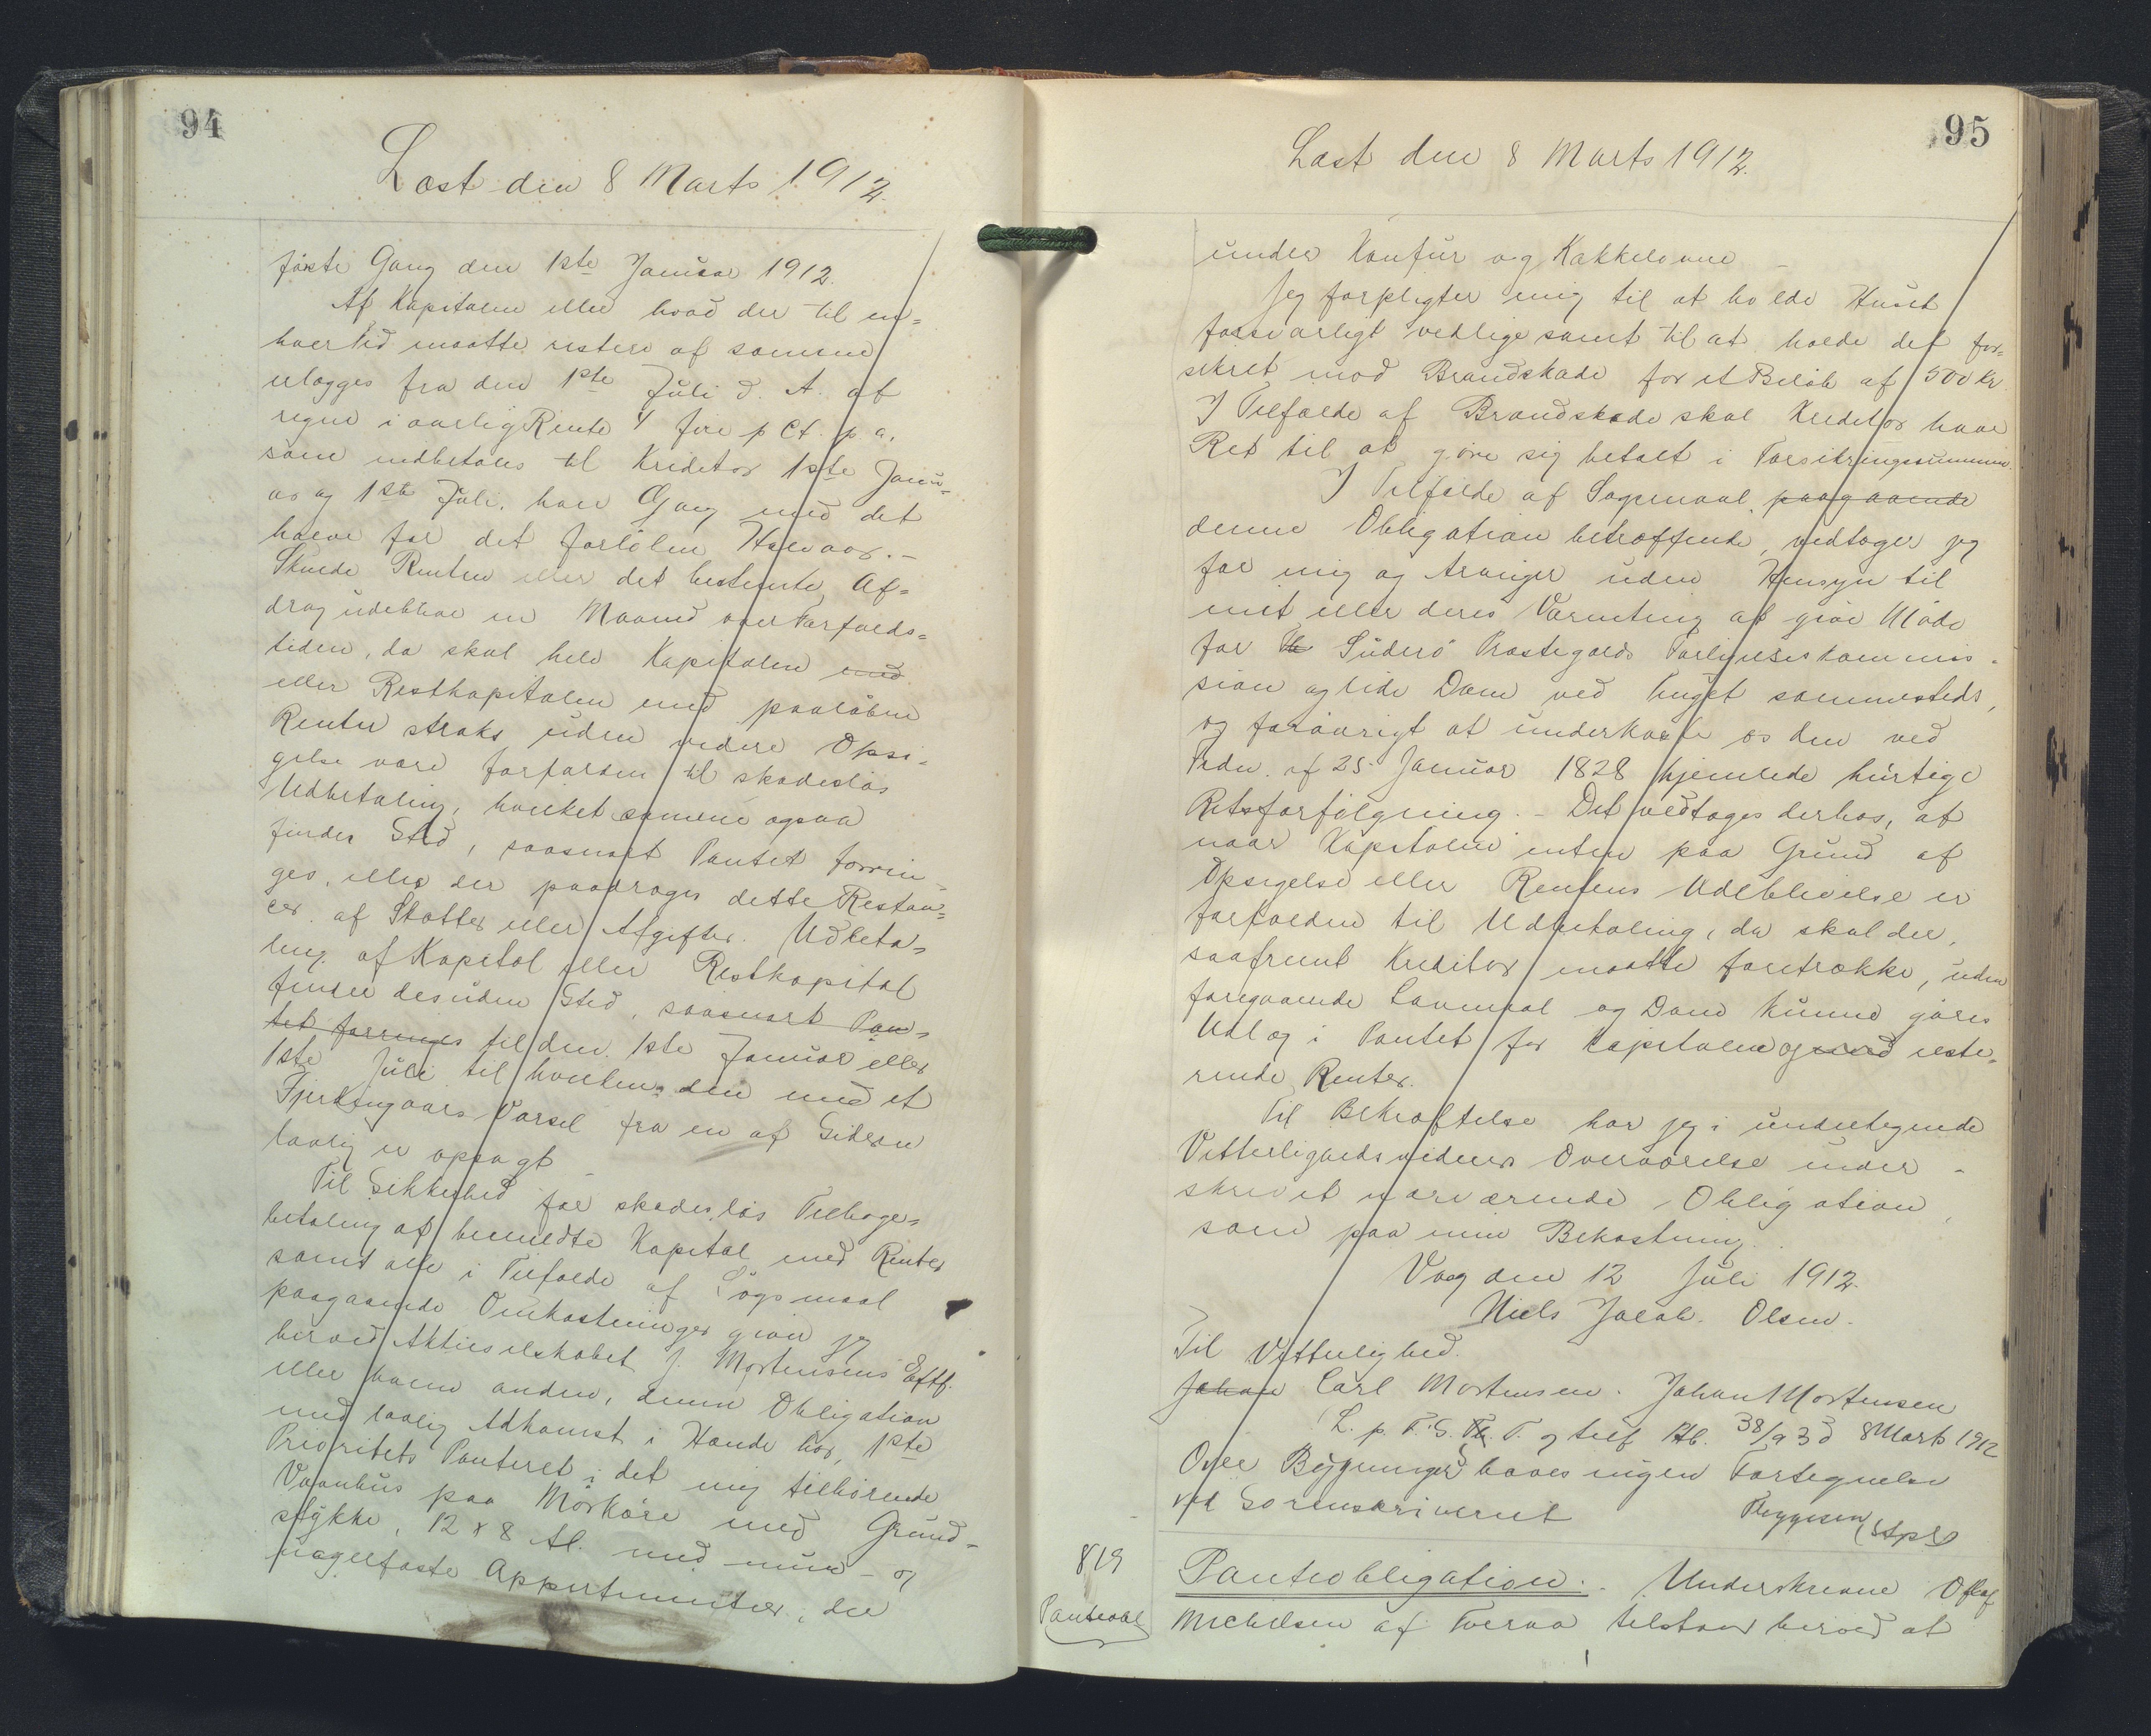 94
Læst den 8 Marts 1912.
förste Gang den 1ste Januar 1912.
Af Kapitalen eller hvad der til en=
hver tid maatte restere af samme
erlægges fra den 1ste Juli d. A. at
regne i aarlig Rente 4 fire p Ct. p a.
som indbetales til Kreditor 1ste Janu=
ar og 1ste Juli, hver Gang med det
halve for det forlöbne Halvaar. -
Skulde Renten eller det bestemte Af=
drag udeblive en Maaned over Forfalds=
tiden, da skal hele Kapitalen med
eller Restkapitalen med paaløbne
Renter straks uden videre Opsi=
gelse være forfalden til skadeslös
Udbetaling, hvilket samme ogsaa
finder Sted, saasnart Pantet forrin=
ges, eller der paadrages dette Restan=
cer af Skatter eller Afgifter. Udbeta=
ling af Kapital eller Restkapital
finder desuden Sted, saasnart Pan=
tet forringes til den 1ste Januar eller
1ste Juli til hvilken den med et
Fjerdingaars Varsel fra en af Siderne
lovlig er opsagt -
Til Sikkerhed for skadeslös Tilbage=
betaling af bemeldte Kapital med Renter
samt alle i Tilfælde af Sögsmaal
paagaaende Omkostninger giver jeg
herved Aktieselskabet J. Mortensens Eftf.
eller hvem anden, denne Obligation
med lovlig Adkomst i Hænde har, 1ste
Prioritets Panteret i det mig tilhörende
Vaanhus paa Mörköre med Grund=
stykke, 12 x 8 Al. med mur- og
nagelfaste Appertinentier, der
95
Læst den 8 Marts 1912.
under Komfur og Kakkelovne -
Jeg forpligter mig til at holde Huset
forsvarligt vedlige samt til at holde det for=
sikret mod Brandskade for et Beløb af 500 Kr
I Tilfælde af Brandskade skal Kreditor have
Ret til at göre sig betalt i Forsikringssummen.
I Tilfælde af Sögsmaal paagaaende
denne Obligation betræffende, vedtager jeg
for mig og Arvinger uden Hensyn til
mit eller deres Værneting at give Möde
for Th Suderö Præstegælds Forligelseskommis=
sion og lide Dom ved Tinget sammesteds,
og forövrigt at underkaste os den ved
Frdn. af 25 Januar 1828 hjemlede hurtige
Retsforfölgning. - Det vedtages derhos, at
naar Kapitalen enten paa Grund af
Opsigelse eller Rentens Udeblivelse er
forfalden til Udbetaling, da skal der,
saafremt Kreditor maatte foretrække, uden
foregaaende Lovmaal og Dom kunne göres
Udlæg i Pantet for Kapitalen og med reste=
rende Renter.
Til Bekræftelse har jeg i undertegnede
Vitterligheds vidners Overværelse under=
skrevet nærværende Obligation,
som paa min Bekostning.
Vaag den 12 Juli 1912.
Niels Jacob. Olsen.
Til Vitterlighed.
Johan Carl Mortensen. Johan Mortensen
L. p. F. S. Th. T. og tilf Ab. 38/93 d 8 Marts 1912
Over Bygninger haves ingen Fortegnelse
ved Sorenskriveriet
(Stpl)
819
Panteobl
Panteobligation. Underskrevne Oflaf
Michelsen af Tveraa tilstaar herved at